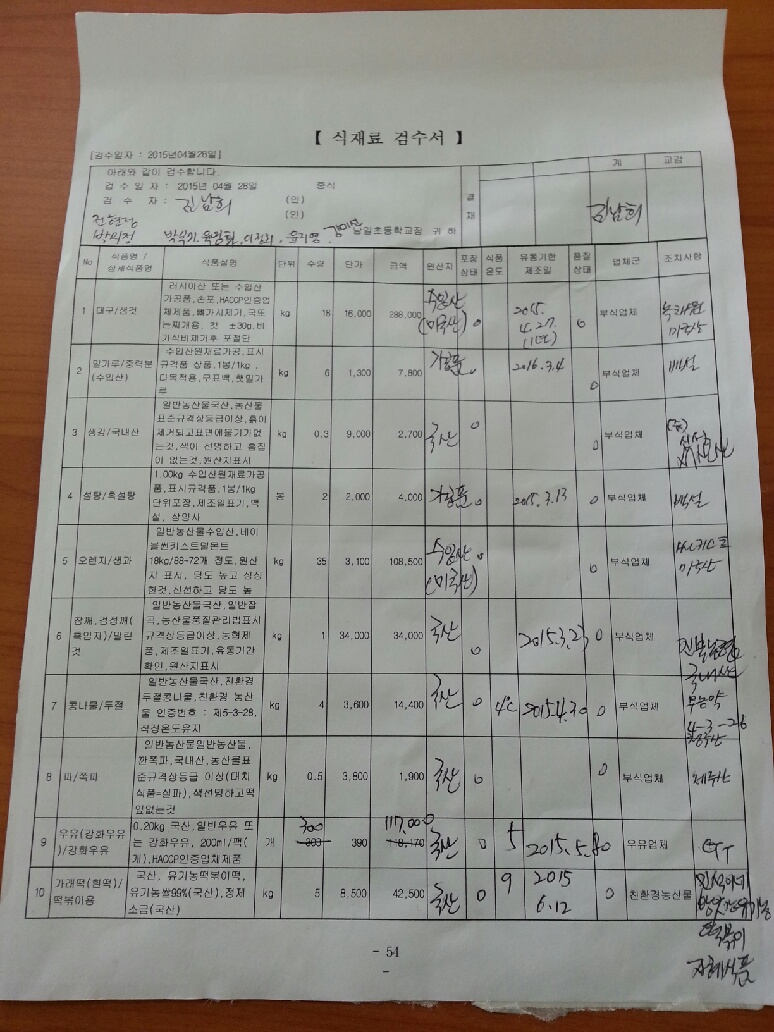 【 식재료 검수서 】
[검수일자 : 2015년04월28일]
아래와 같이 검수합니다.
검 수 일 자 : 2015년 04월 28일 중식
검 수 자 : 김남희 (인)
(인)
남일초등학교장 귀 하
결재 계 교감
김남희
No 식품명 / 상세식품명 식품설명 단위 수량 단가 금액 원산지 포장상태 식품온도 유통기한 제조일 품질상태 업체군 조치사항
1 대구/생것 러시아산 또는 수입산
가공품,손포,HACCP인증업
체제품,뼈가시제거,국또
는찌개용, 컷 ±30g,비
가식비제거후 포절단
kg 18 16,000 288,000 수입산 (미국산) 0 2015. 4.27. 0 부식업체 미국산
2 밀가루/중력분
(수입산)
수입산원재료가공,표시
규격품 상품,1봉/1kg,
다목적용,구표백,햇밀가
루
kg 6 1,300 7,800 가공품 0 2016.3.4 0 부식업체 백설
3 생강/국내산 일반농산물국산,농산물
표준규격상등급이상,흙이
제거되고표면에물기가없
는것,색이 선명하고 흠집
이 없는것,원산지표시
kg 0.3 9,000 2,700 국산 0 0 부식업체
4 설탕/흑설탕 1.00kg 수입산원재료가공
품,표시규격품,1봉/1kg
단위포장,제조일표기,백
설, 삼양사
봉 2 2,000 4,000 가공품 0 2015.3.13 0 부식업체 백설
5 오렌지/생과 일반농산물수입산,네이
블썬키스트델몬트
18kg/88-72개 정도,원산
지 표시, 당도 높고 싱싱
한것,신선하고 당도 높
kg 35 3,100 108,500 수입산 (미국산) 0 0 부식업체 미국산
6 참깨,검정깨(
흑임자)/말린
것
일반농산물국산,일반잡
곡,농산물품질관리법표시
규격상등급이상,농협제
품,제조일표기,유통기간
확인,원산지표시
kg 1 34,000 34,000 국산 0 2015.3.23 0 부식업체 국내산
7 콩나물/두절 일반농산물국산,친환경
두절콩나물,친환경 농산
물 인증번호 : 제5-3-28,
적정온도유지
kg 4 3,600 14,400 국산 0 4℃ 2015.4.30 0 부식업체 무농약
4-3-26
8 파/쪽파 일반농산물일반농산물,
깐쪽파,국내산,농산물표
준규격상등급 이상(대치
식품=실파),색선명하고떡
잎없는것
kg 0.5 3,800 1,900 국산 0 0 부식업체 제주산
9 우유(강화우유
)/강화우유
0.20kg 국산,일반우유 또
는 강화우유, 200ml/팩(
개),HACCP인증업체제품
개 300 390 117,000 국산 0 5 부식업체 우유업체
10 가래떡(흰떡)/
떡볶이용
국산, 유기농떡볶이떡,
유기농쌀99%(국산),정제
소금(국산)
kg 5 8,500 42,500 국산 0 9 2015 6.12 0 친환경농산물
떡볶이
- 54 -